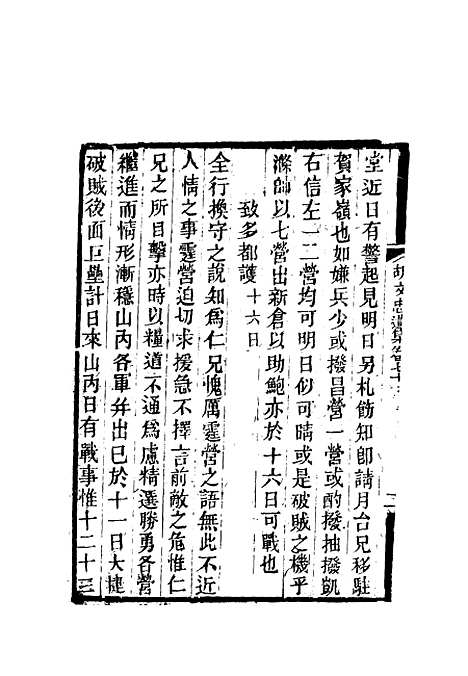 堂近日有警起見明日另札飭知卽請月台兄移駐
賀家嶺也如嫌兵少或撥昌營一營或酌撥抽撥凱
右信左一二營均可明日似可晴或是破賊之機乎
滌帥以七營出新倉以助鮑亦於十六日可戰也
致多都護十六日
全行換守之說知爲仁兄愧厲霆營之語無此不近
人情之事霆營迫切求援急不擇言前敵之危惟仁
兄之所目擊亦時以糧道不通爲慮精選勝勇各營
繼進而情形漸穩山內各軍幷出已於十一日大捷
破賊後面巨壘計日來山丙日有戰事惟十二十三
胡文忠公遺集卷七十
二